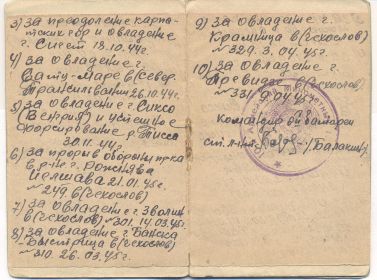 3) За преодоление карпа-
тских гор и овладение
г. Сигет 18.10.44г.
4) За овладение г.
Сату-Маре в (север.
Трансильвании 26.10.44г.
5) За овладение г. Сиксо
(Венгрия) и успешное
форсирование р. Тисса
30.11.44г.
6) За прорыв обороны пр-ка
в р-не г. Рожнява
Иелшава 21.01.45г.
№ 249 в (Чехослов)
7) За овладение г. Зволин
в (Чехослов) № 301. 14.03.45г.
8) За овладение г. Банска
-Быстрица в (Чехослов)
№ 310. 26.03.45г.
9) За овладение г.
Крамница в (Чехослов)
№ 329. 3.04.45г.
10) За овладение г.
Превидза (Чехослов)
№ 331. 9.04.45г.
Командир батареи
ст. л-нт (Балакин)